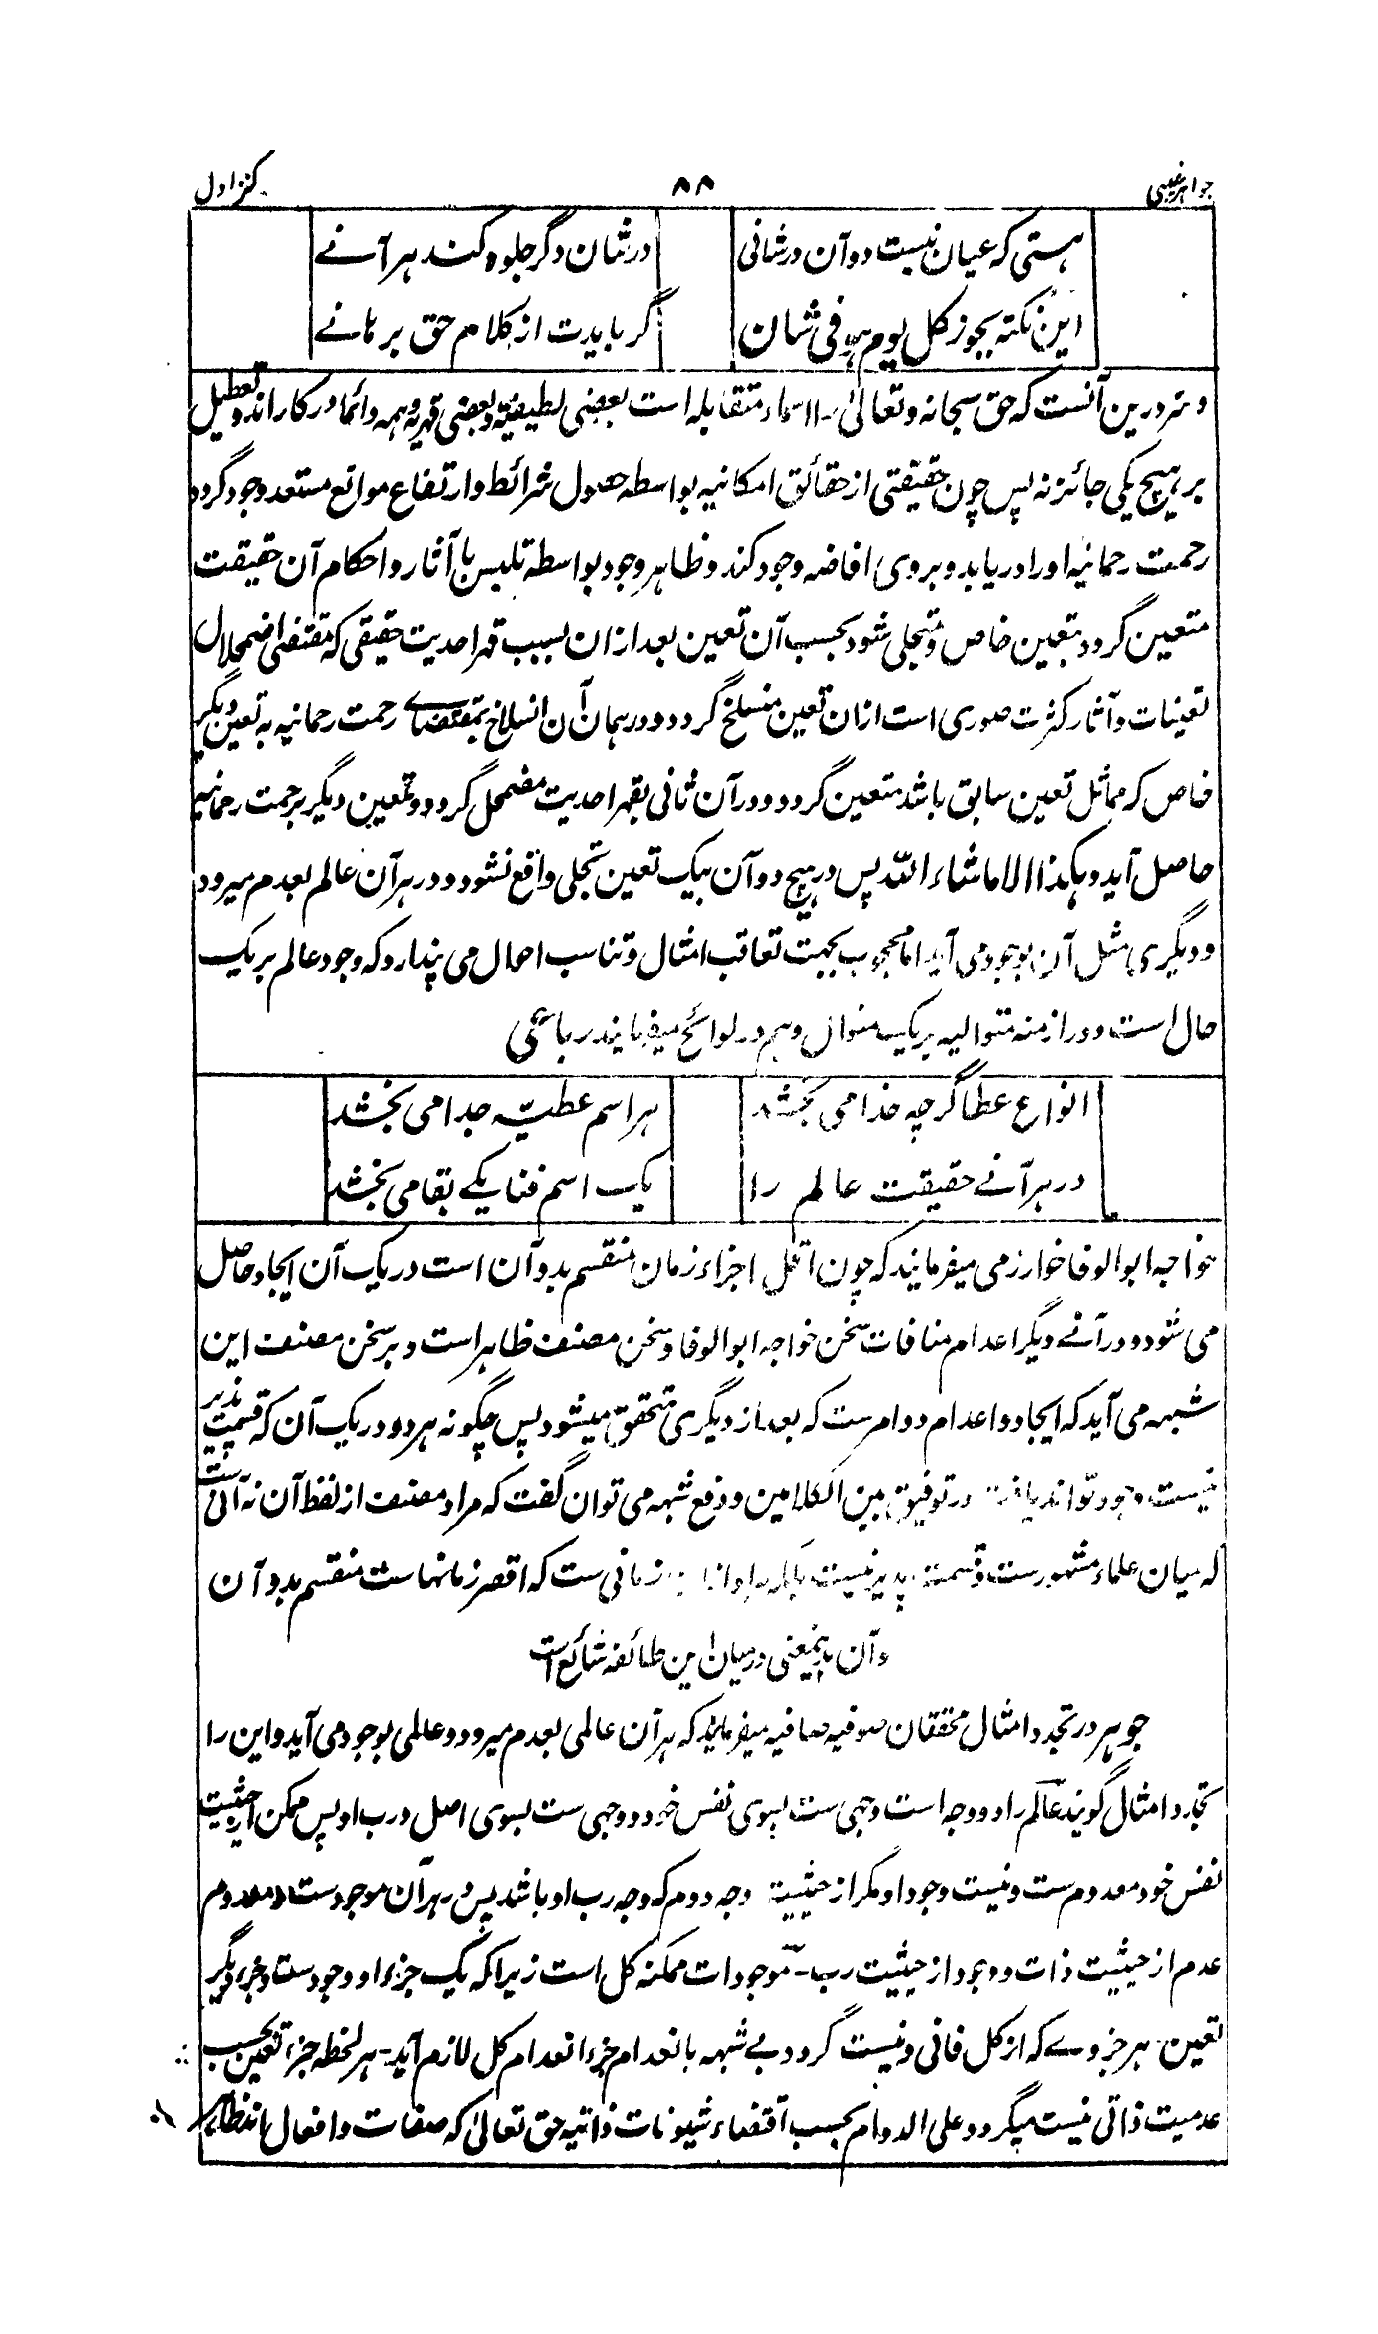 جواہر غیبی ۸۸ کنز اول
ہستی کہ عیان نیست دو آن در شانی در شان دگر جلوہ کند ہر آنے
این نکتہ بجوز کل یوم ہو فی شان گر بایدت از کلام حق برہانے
و سر درین آنست کہ حق سبحانہ و تعالیٰ را اسماء متقابلہ است بعضی لطیفیہ و بعضی قہریہ و ہمہ دائما در کار اند و تعطیل
بر ہیچ یکی جائز نہ پس چون حقیقتی از حقائق امکانیہ بواسطہ حصول شرائط و ارتفاع موانع مستعد وجود گردد
رحمت رحمانیہ او را در یابد و بر وی افاضہ وجود کند و ظاہر وجود بواسطہ تلبس با آثار و احکام آن حقیقت
متعین گردد بتعین خاص و متجلی شود بحسب آن تعین بعد ازان بسبب قہر احدیت حقیقی کہ مقتضی اضمحلال
تعینات و آثار کثرت صوری است ازان تعین منسلخ گردد و در ہمان آن انسلاخ بمقتضاے رحمت رحمانیہ بہ تعین دیگر
خاص کہ مماثل تعین سابق باشد متعین گردد و در آن ثانی بقہر احدیت مضمحل گردد و تعین دیگر برحمت رحمانیہ
حاصل آید و ہکذا الا ما شاء اللّٰہ پس در ہیچ دو آن بیک تعین تجلی واقع نشود و در ہر آن عالم بعدم میرود
و دیگری مثل آن بوجود می آید اما محجوب بجہت تعاقب امثال و تناسب احوال می پندارد کہ وجود عالم بر یک
حال است و در ازمنہ متوالیہ بر یک منوال و ہم در لوائح میفرمایند رباعی
انواع عطا گرچہ خدا می بخشد ہر اسم عطیّہ جدا می بخشد
در ہر آنے حقیقت عالم را یک اسم فنا یکے بقا می بخشد
خواجہ ابوالوفا خوارزمی میفرمایند کہ چون اقل اجزاء زمان منقسم بدو آن است در یک آن ایجاد حاصل
می شود و در آنے دیگر اعدام منافات سخن خواجہ ابوالوفا و سخن مصنف ظاہر است و بر سخن مصنف این
شبہہ می آید کہ ایجاد و اعدام دو امرست کہ بعد از دیگری متحقق میشود پس چگونہ ہر دو در یک آن کہ قسمت پذیر
نیست وجود تواند یافت در توفیق بین الکلامین و دفع شبہہ می توان گفت کہ مراد مصنف از لفظ آن نہ آنی است
کہ میان علماء مشہورست و قسمت پذیر نیست بلکہ مراد زمانی ست کہ اقصر زمانہاست منقسم بدو آن
و آن باینمعنی در میان این طائفہ شائع است
جوہر در تجدد امثال محققان صوفیہ صافیہ میفرمایند کہ ہر آن عالمی بعدم میرود و عالمی بوجود می آید و این را
تجدد امثال گویند عالم را دو وجہ است وجہی ست بسوی نفس خود و وجہی ست بسوی اصل و رب او پس ممکن از حیثیت
نفس خود معدوم ست و نیست وجود او مگر از حیثیت وجہ دوم کہ وجہ رب او باشد پس در ہر آن موجود ست و معدوم
عدم از حیثیت ذات و وجود از حیثیت رب - موجودات ممکنہ کل است زیرا کہ یک جزء او وجود ست و جزء دیگر
تعین ہر جزوے کہ از کل فانی و نیست گردد بے شبہہ بانعدام جزء انعدام کل لازم آید - ہر لحظہ جزء تعین بحسب
عدمیت ذاتی نیست میگردد و علی الدوام بحسب اقتضاء شیونات ذاتیہ حق تعالیٰ کہ صفات و افعال اند